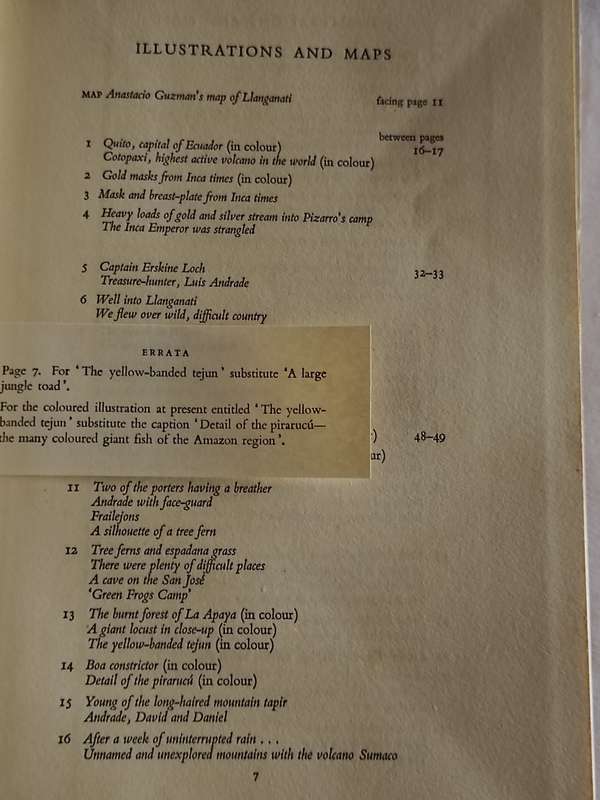 ILLUSTRATIONS AND MAPS
MAP Anastacio Guzman's map of Llanganati facing page 11
between pages
1 Quito, capital of Ecuador (in colour) 16–17
Cotopaxi, highest active volcano in the world (in colour)
2 Gold masks from Inca times (in colour)
3 Mask and breast-plate from Inca times
4 Heavy loads of gold and silver stream into Pizarro's camp
The Inca Emperor was strangled
5 Captain Erskine Loch 32–33
Treasure-hunter, Luis Andrade
6 Well into Llanganati
We flew over wild, difficult country
ERRATA
Page 7. For 'The yellow-banded tejun' substitute 'A large
jungle toad'.
For the coloured illustration at present entitled 'The yellow-
banded tejun' substitute the caption 'Detail of the pirarucú—
the many coloured giant fish of the Amazon region'.
48–49
11 Two of the porters having a breather
Andrade with face-guard
Frailejons
A silhouette of a tree fern
12 Tree ferns and espadana grass
There were plenty of difficult places
A cave on the San José
'Green Frogs Camp'
13 The burnt forest of La Apaya (in colour)
A giant locust in close-up (in colour)
The yellow-banded tejun (in colour)
14 Boa constrictor (in colour)
Detail of the pirarucú (in colour)
15 Young of the long-haired mountain tapir
Andrade, David and Daniel
16 After a week of uninterrupted rain . . .
Unnamed and unexplored mountains with the volcano Sumaco
7